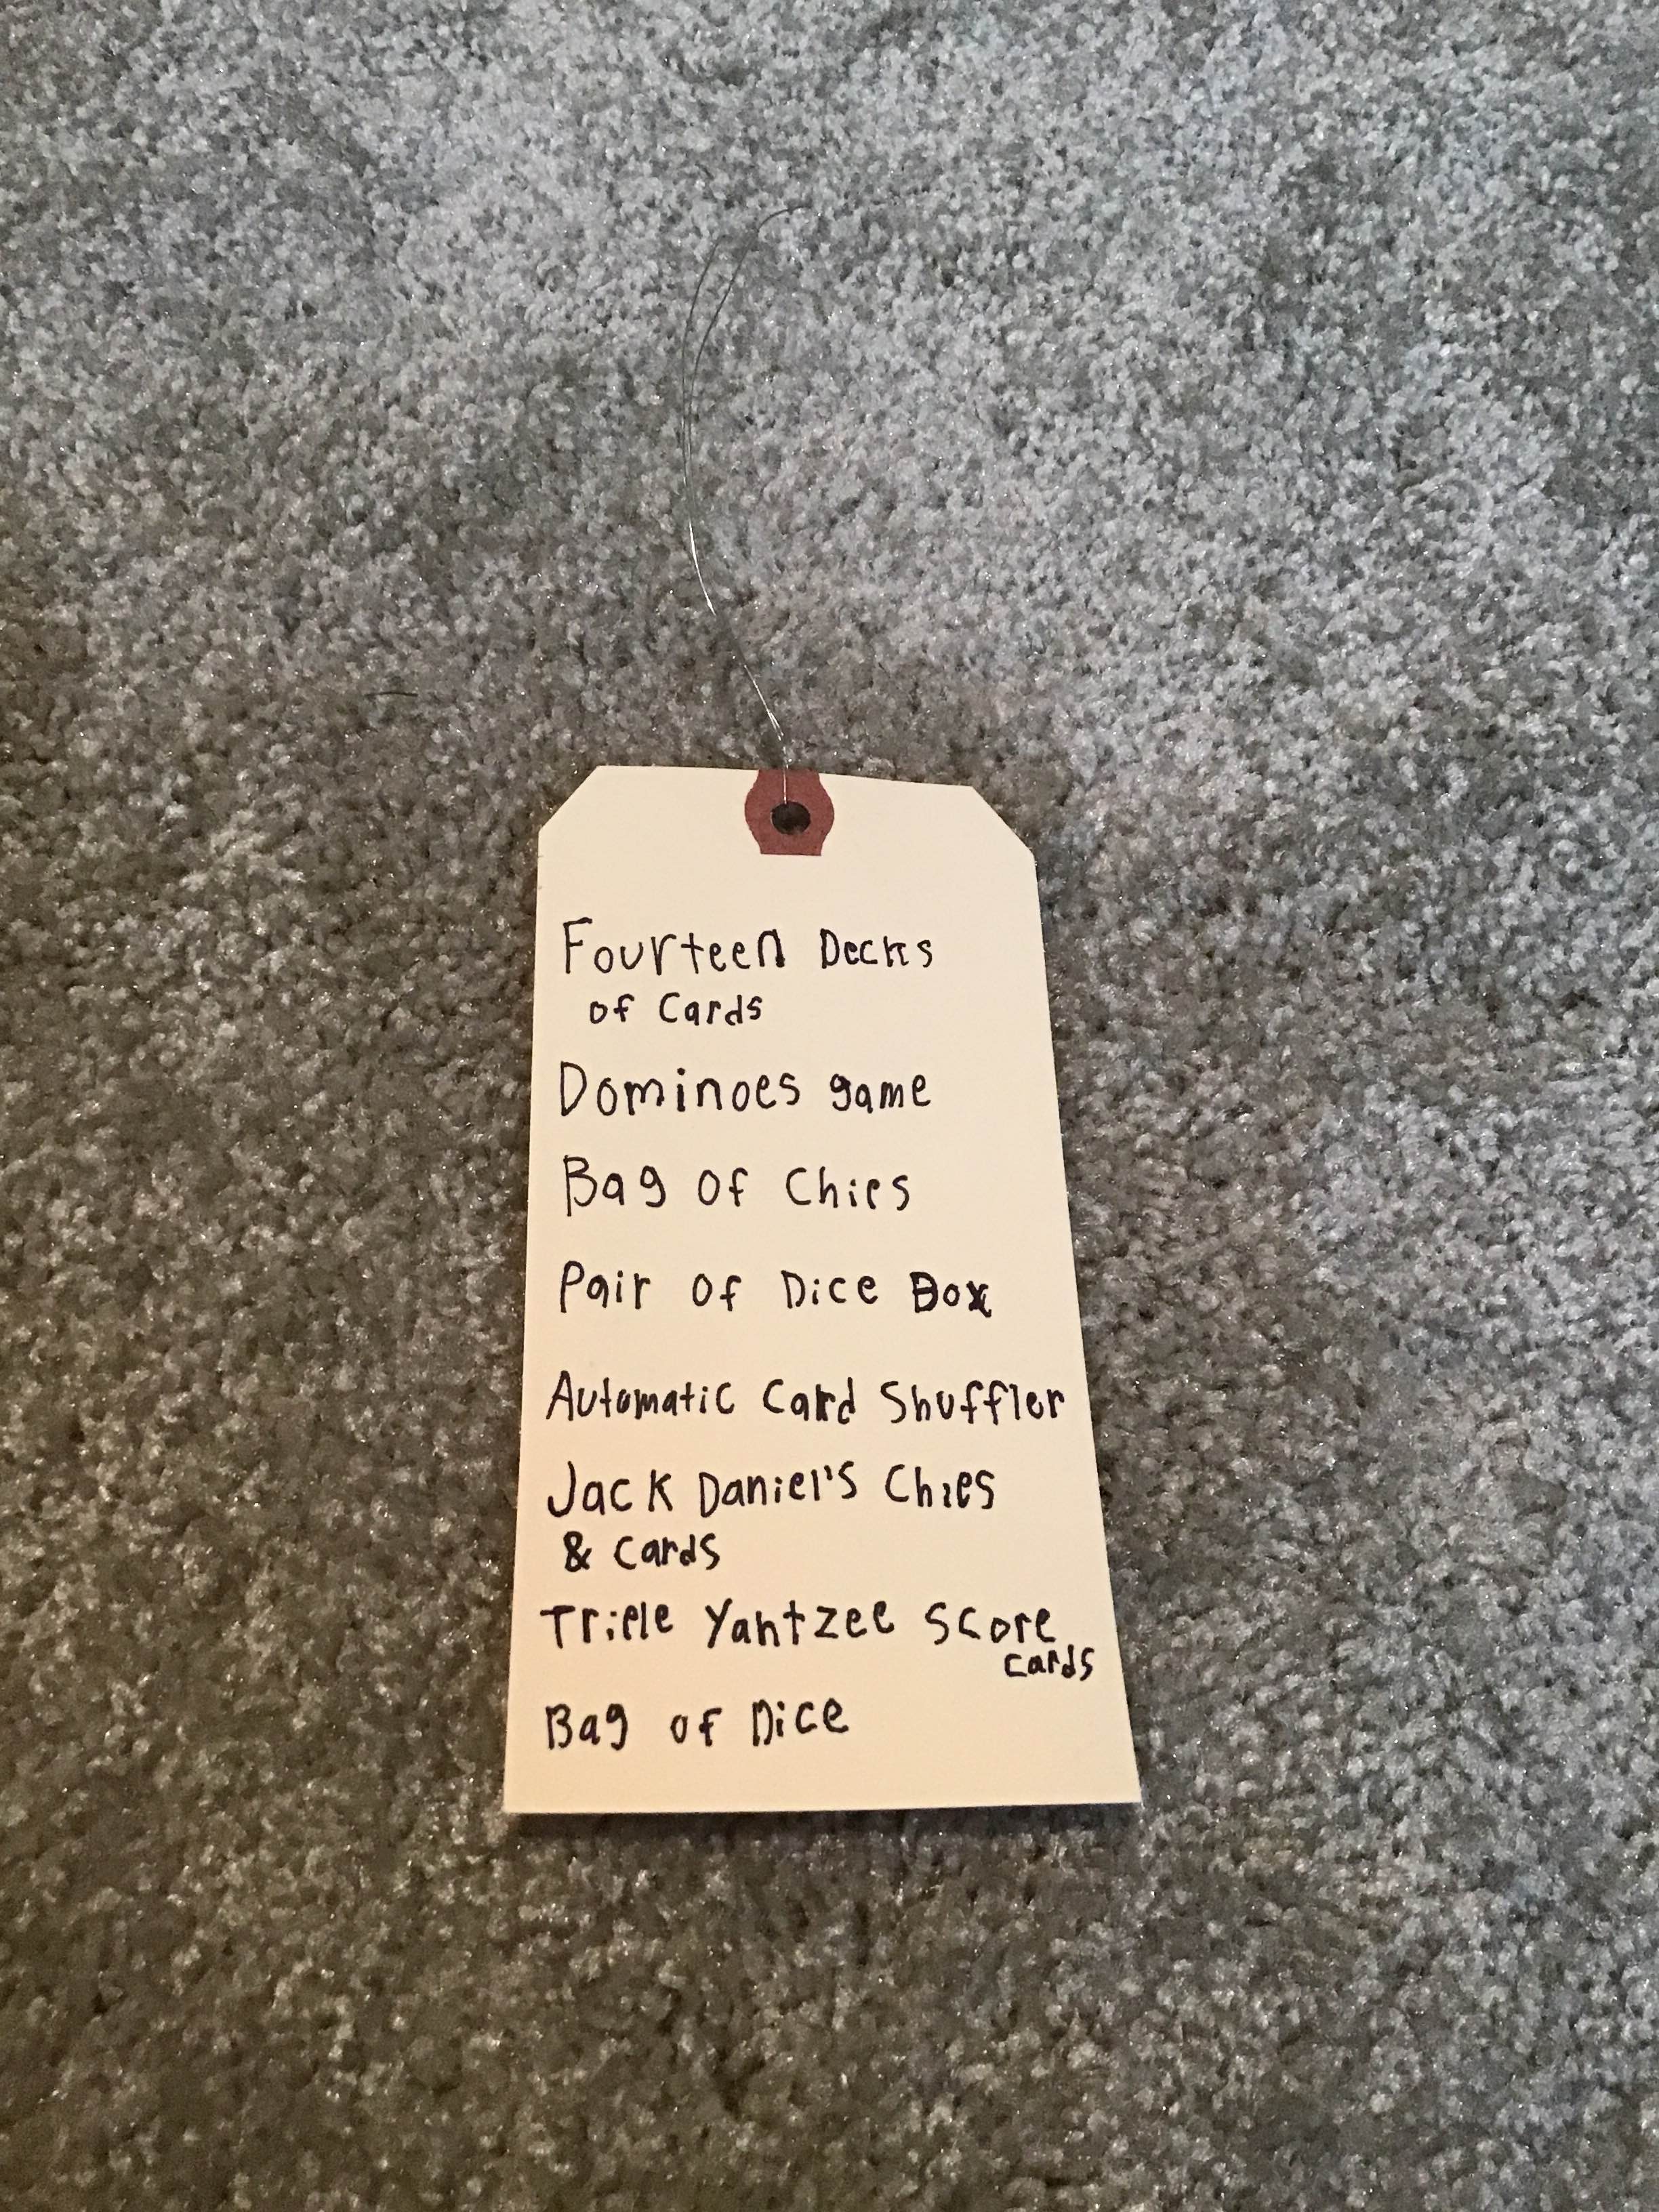 Fourteen Decks
of Cards
Dominoes game
Bag of Chips
Pair of Dice Box
Automatic Card Shuffler
Jack Daniel's Chips
& Cards
Triple Yahtzee Score
cards
Bag of Dice